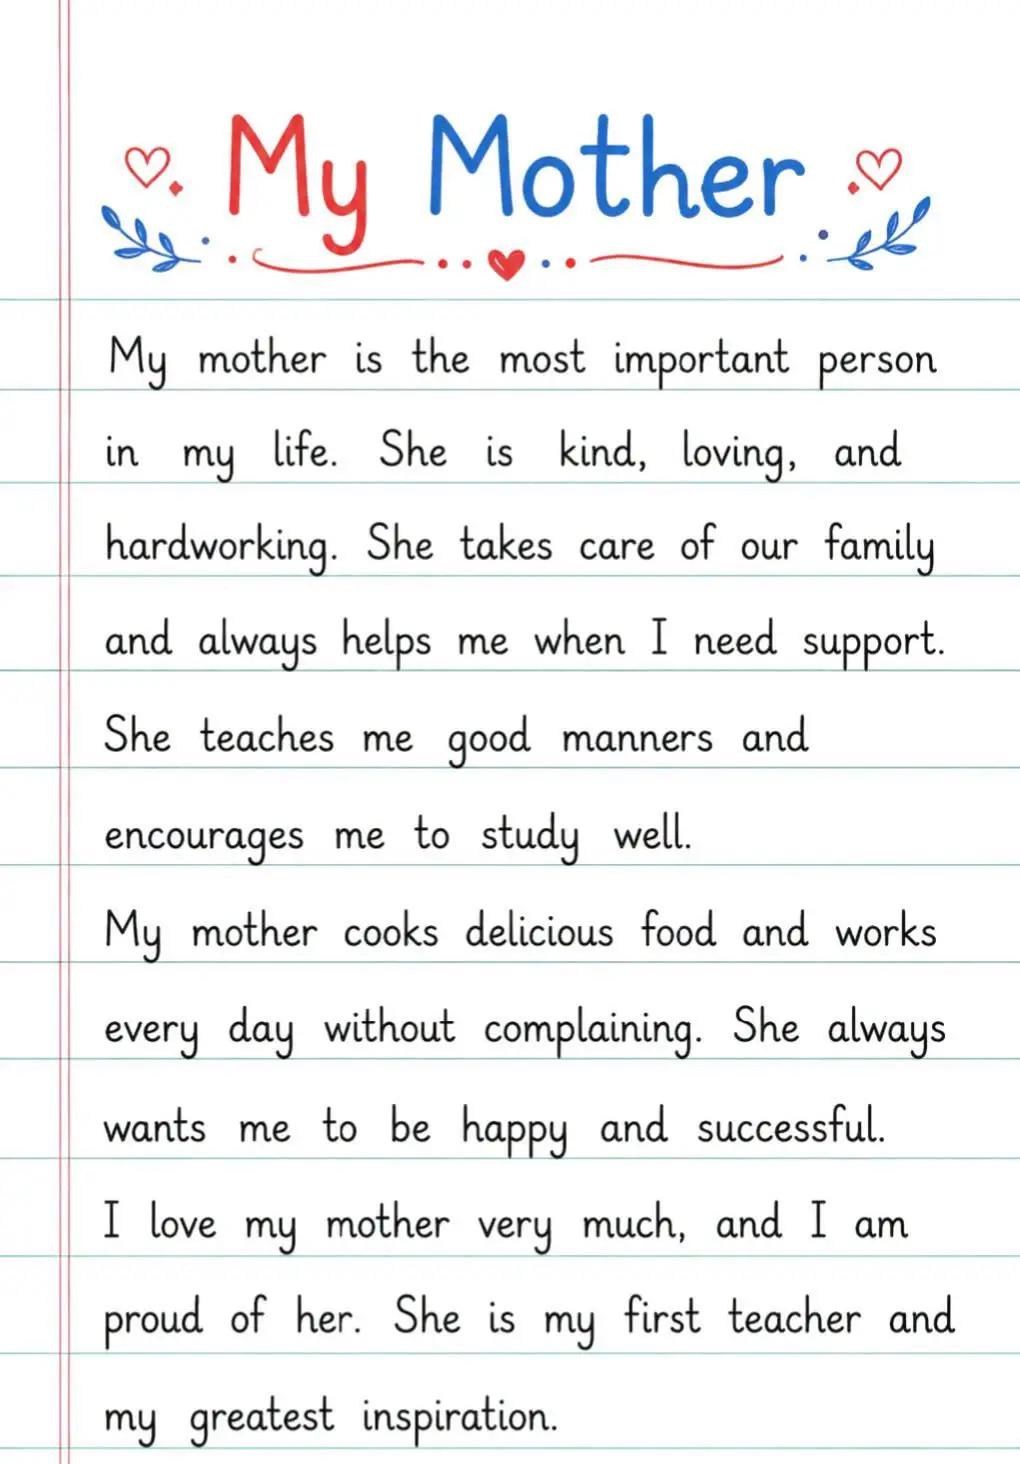 My Mother
My mother is the most important person
in my life. She is kind, loving, and
hardworking. She takes care of our family
and always helps me when I need support.
She teaches me good manners and
encourages me to study well.
My mother cooks delicious food and works
every day without complaining. She always
wants me to be happy and successful.
I love my mother very much, and I am
proud of her. She is my first teacher and
my greatest inspiration.